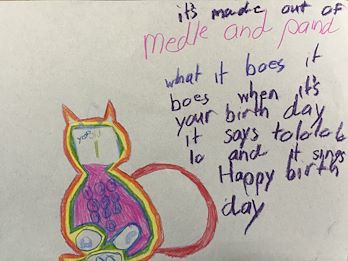 it's made out of
medle and paind
what it boes it
boes when it's
your birth day
it says tololob
lo and it sings
Happy birth
day